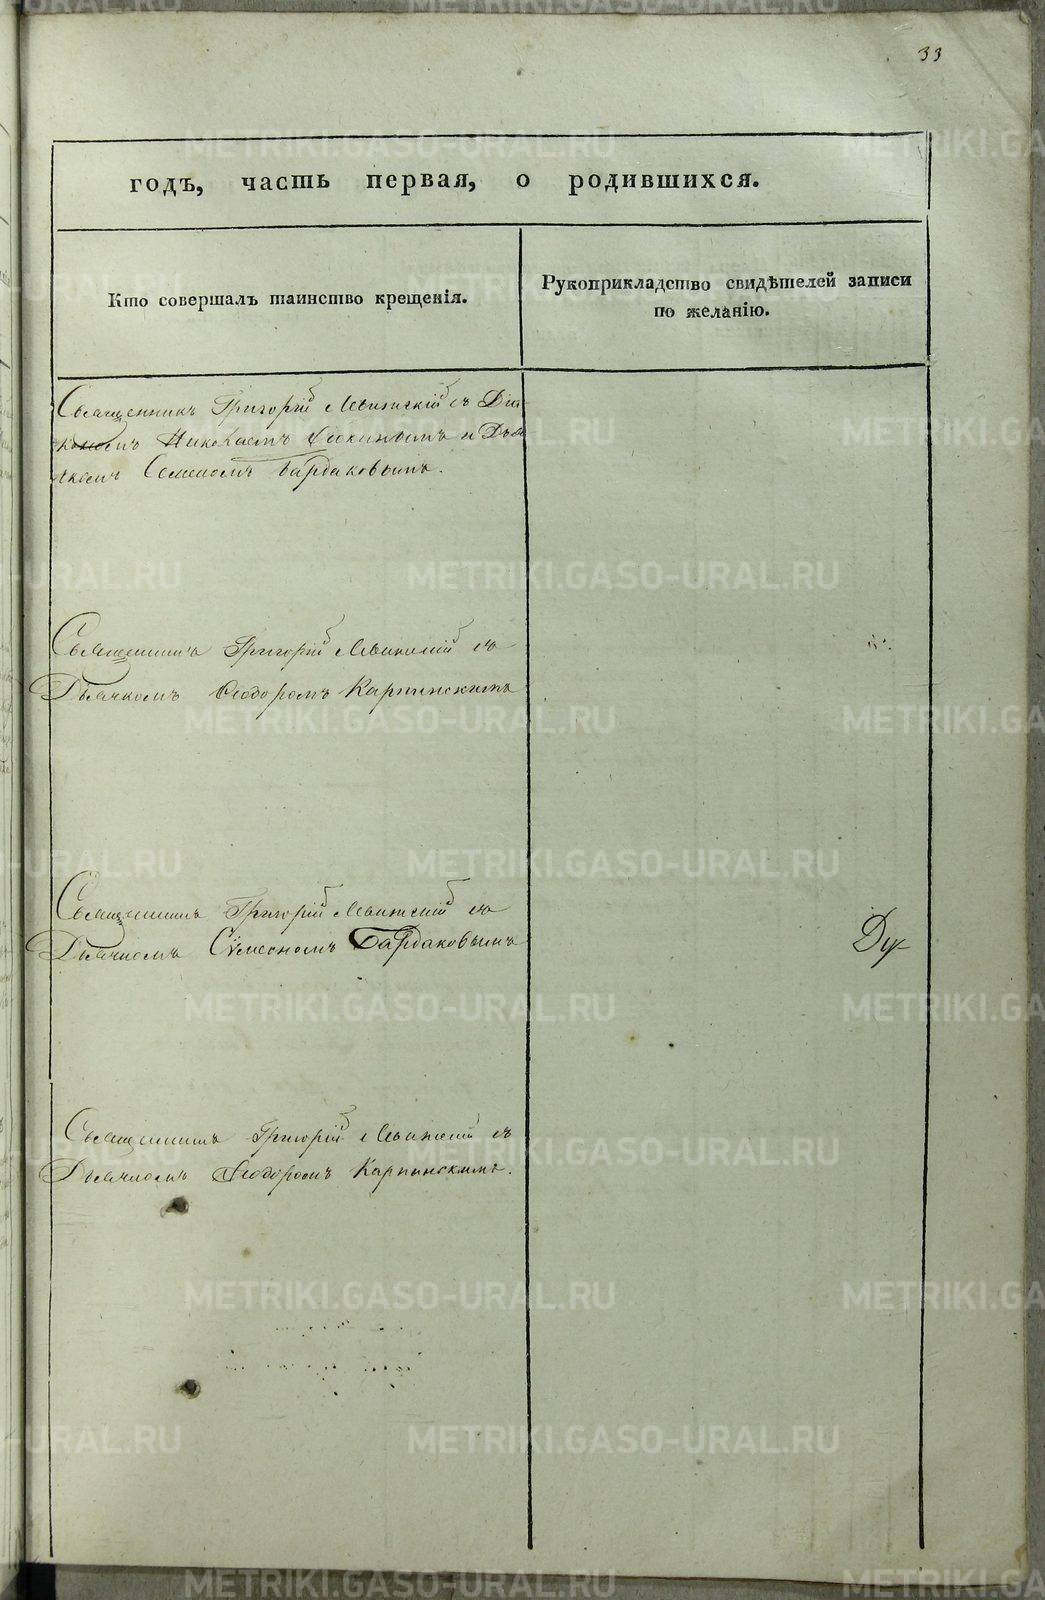 33
годъ, часть первая, о родившихся.
Кто совершалъ таинство крещенія.
Рукоприкладство свидѣтелей записи
по желанію.
Священникъ Григорій Левитскій съ Діа-
кономъ Николаемъ и Дья-
чкомъ Семеномъ Бардаковымъ.
Священникъ Григорій Левитскій съ
Дьячкомъ Ѳеодоромъ Карпинскимъ
Священникъ Григорій Левитскій съ
Дьячкомъ Сѵмеономъ Бардаковымъ
Ду-
Священникъ Григорій Левитскій съ
Дьячкомъ Ѳеодоромъ Карпинскимъ.
METRIKI.GASO-URAL.RU